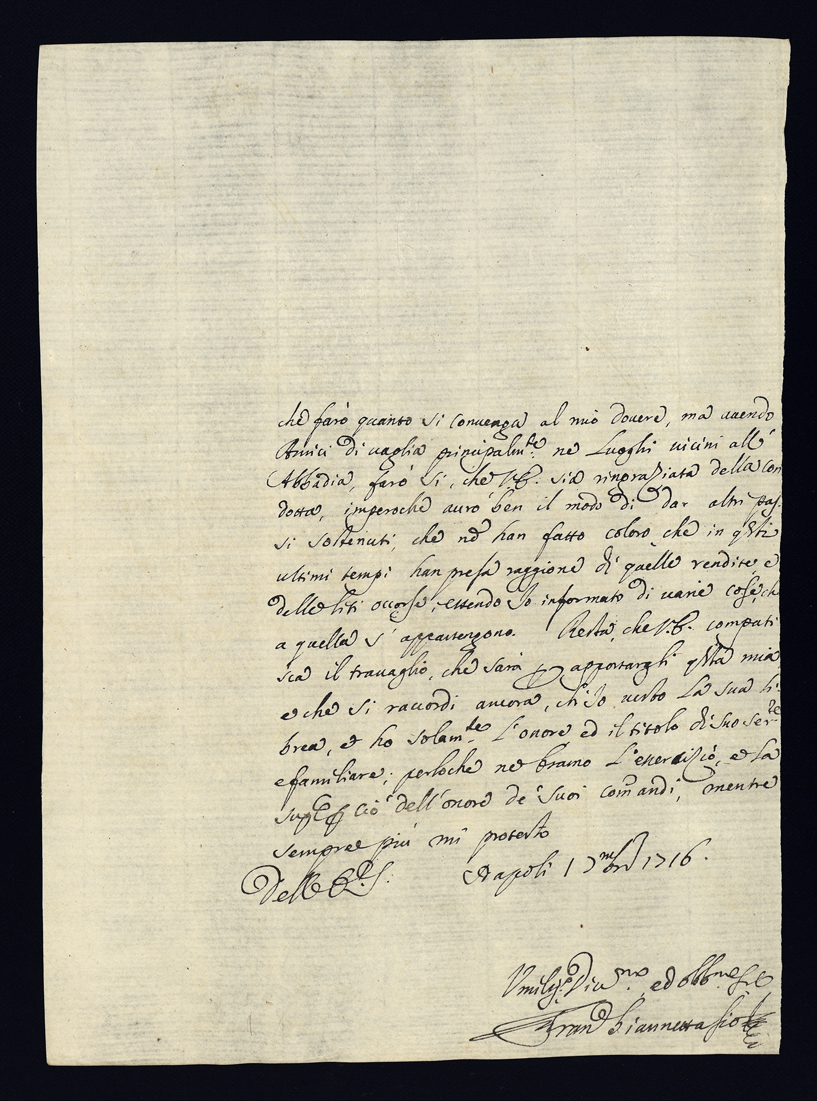 che farò quanto si convenga al mio dovere, ma avendo
Amici di vaglia principalmte. ne Luoghi vicini all'
Abbadia, farò si, che V.E. sia ringraziata della con
dotta, imperochè avrò ben il modo di dar altri pas-
si sostenuti, che nō han fatto coloro, che in qsti
ultimi tempi han presa raggione di quelle rendite, e
delle liti occorse, essendo Io informato di varie cose, ch
a quella s' appartengono. Resta, che V.E. compati
sca il travaglio, che sarà p apportargli qsta mia
e che si raccordi ancora, ch'Io vesto La sua li-
brea, e ho solamte. L'onore ed il titolo di suo serre
e familiare; perloche ne bramo L'esercizio, e La
supco p ciò dell'onore de' suoi comandi, mentre
sempre più mi protesto
Dell'E.V. Napoli 1 7mbre 1716.
Umilismo Divmo ed obbmo sre
Franco Giannettasio